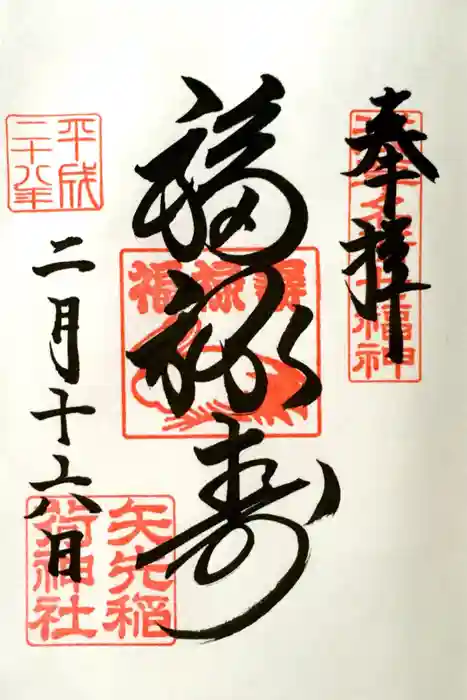 奉拝
浅草名所七福神
福禄寿
福禄壽
平成
二十八年
二月十六日
矢先稲
荷神社